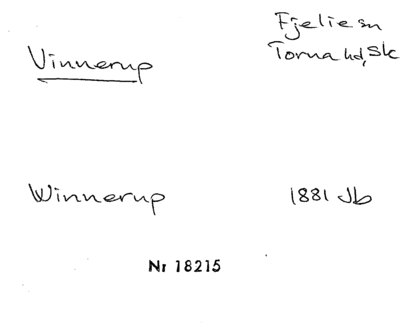 Fjelie sn
Vinnerup
Torna hd, Sk
Winnerup
1881 Jb
Nr 18215